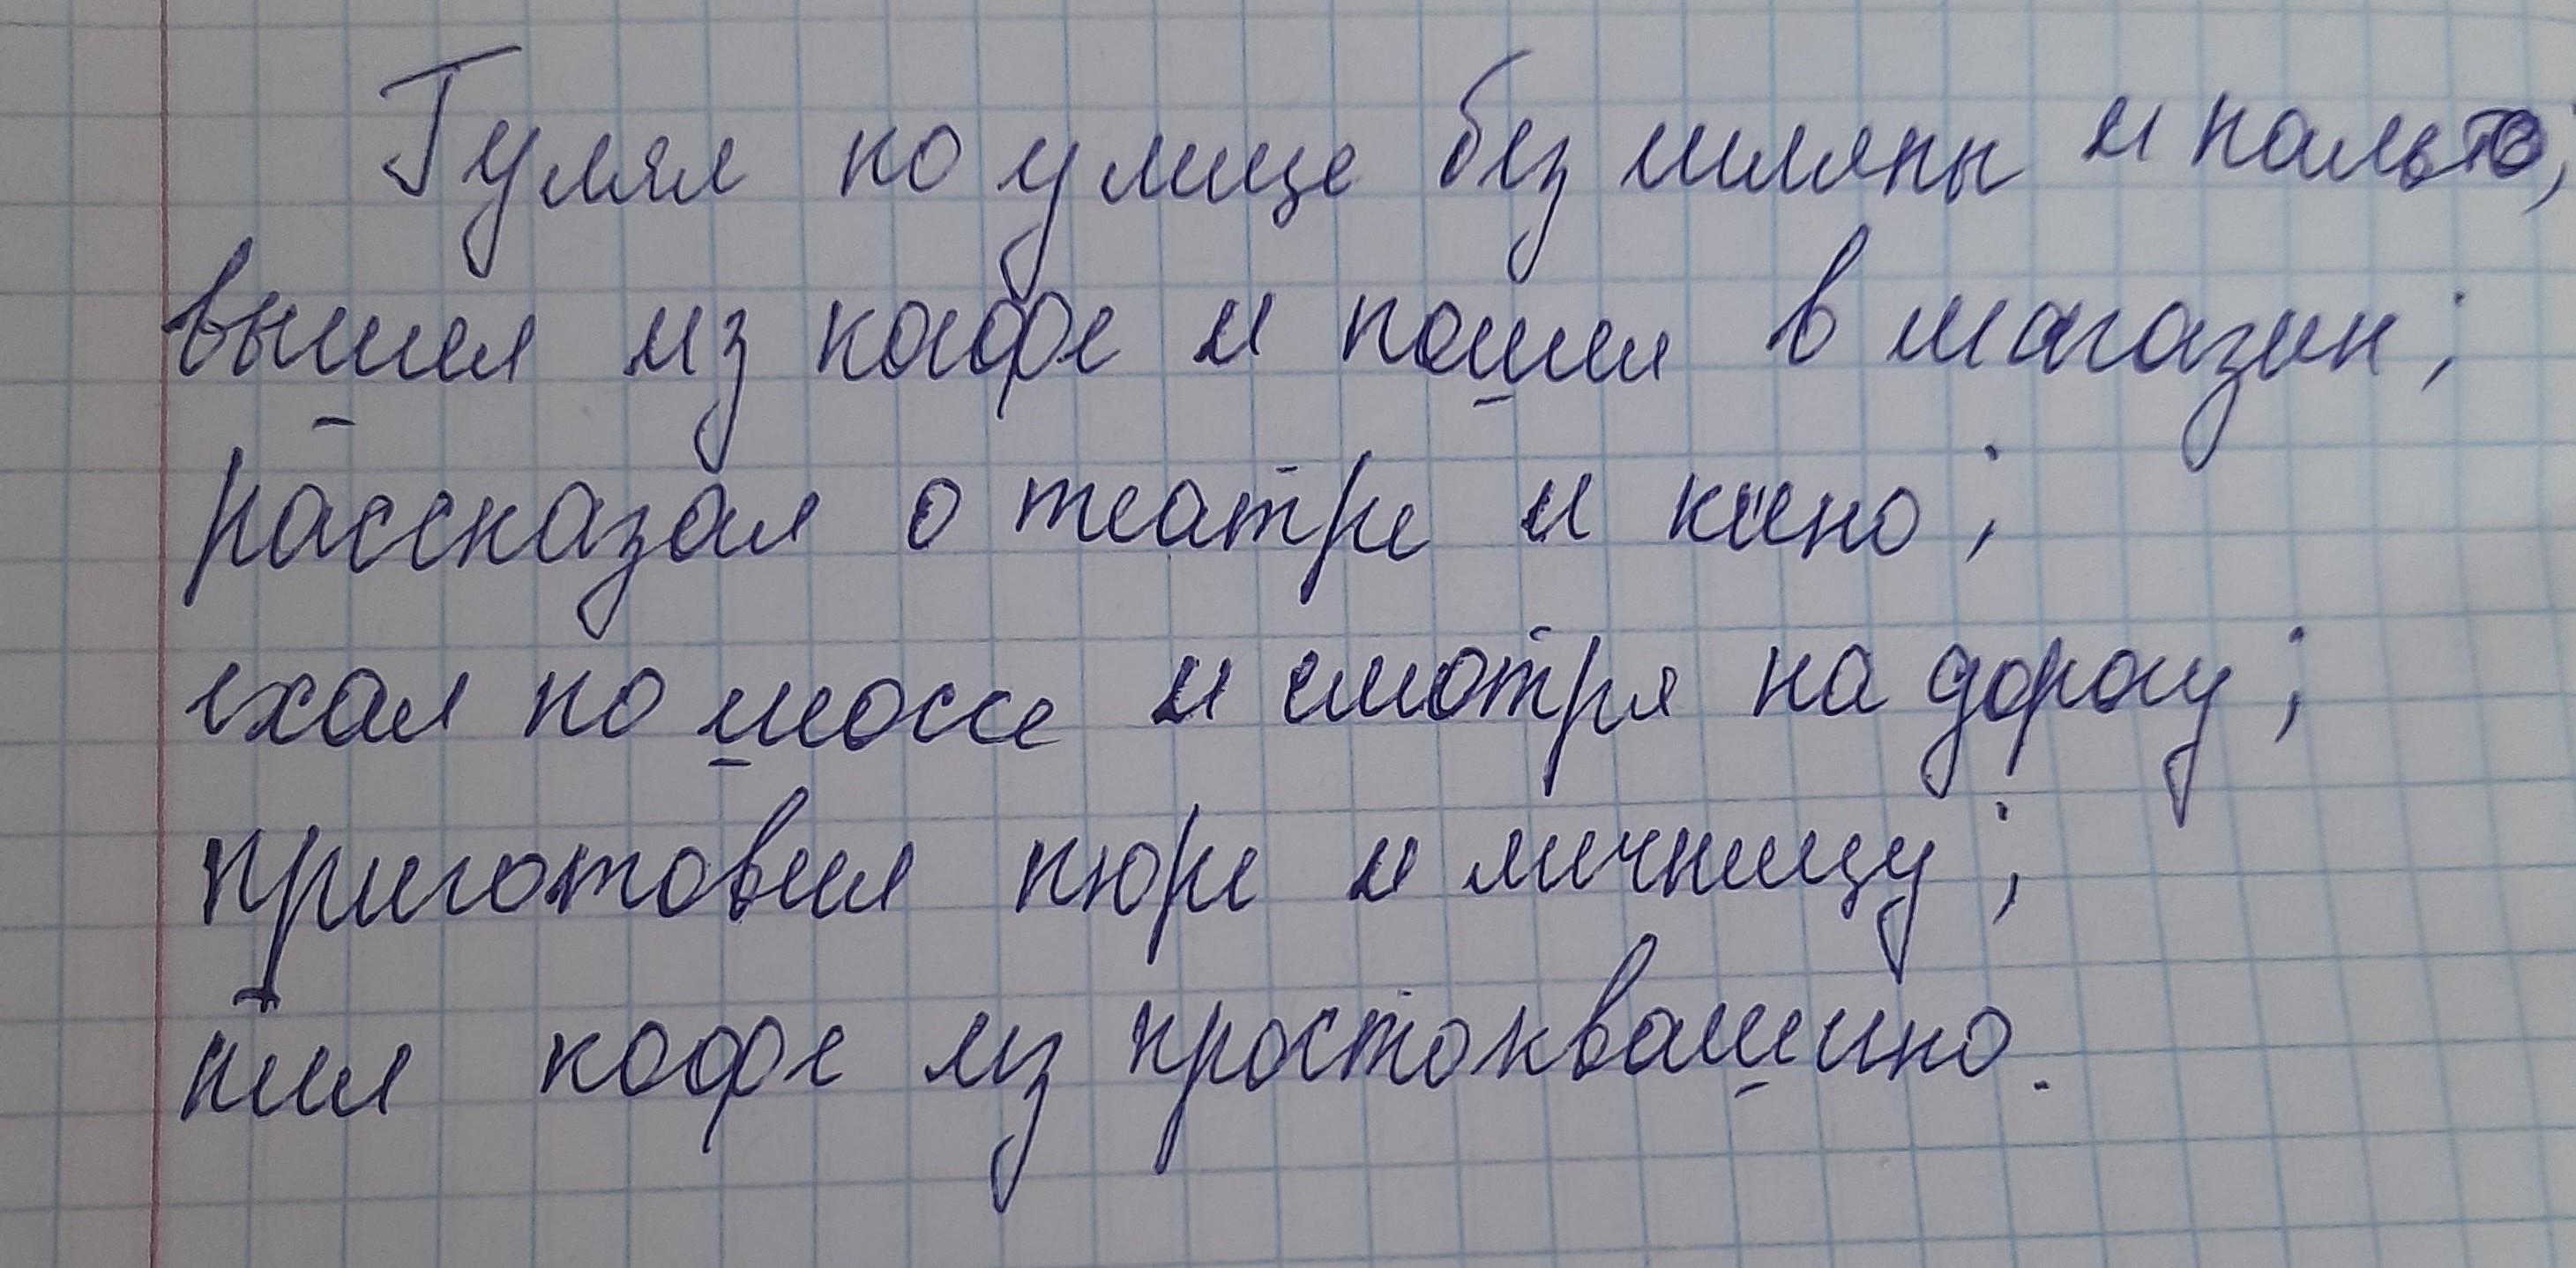 Гулял по улице без шляпы и пальто;
вышел из кафе и пошел в магазин;
рассказал о театре и кино;
ехал по шоссе и смотря на дорогу;
приготовил пюре и яичницу;
пил кофе из простоквашино.